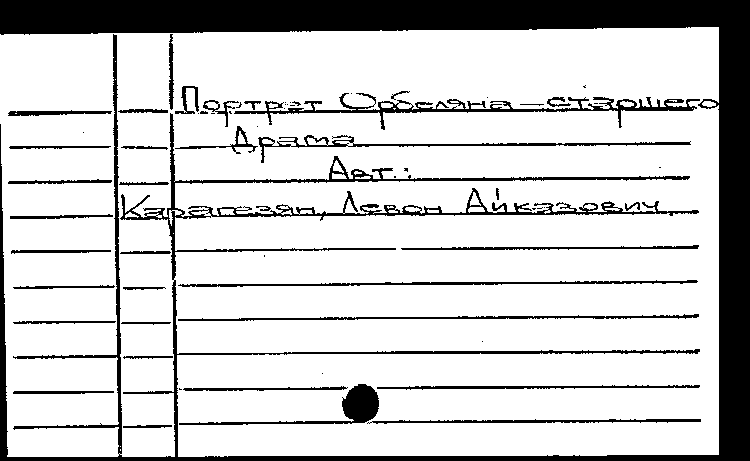 Портрет Орбеляна-старшего
Драма
Авт.:
Карагезян, Левон Айказович.